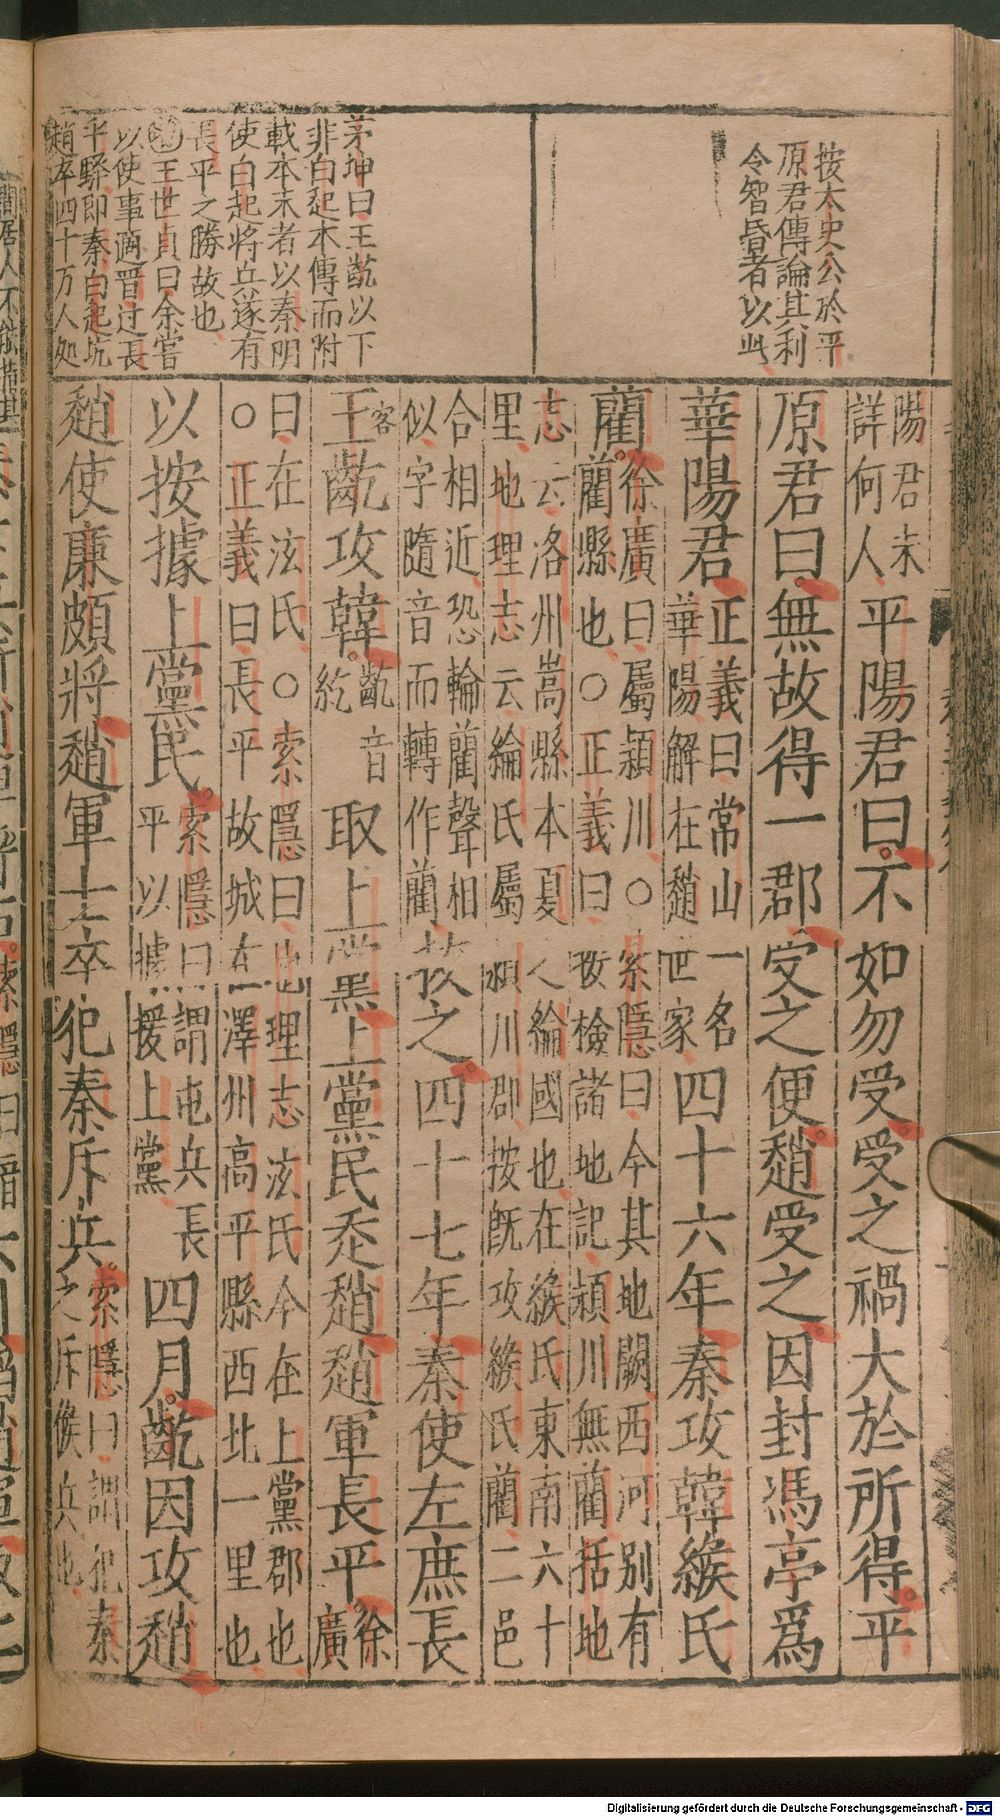 按太史公於平
原君傳論其利
令智昏者以此
茅坤曰王齕以下
非白起本傳而附
載本末者以秦明
使白起將兵遂有
長平之勝故也
王世貞曰余嘗
以使事適晋过長
平驛即秦白起坑
趙卒四十万人処
陽君未
詳何人
平陽君曰不如勿受受之禍大於所得平
原君曰無故得一郡受之便趙受之因封馮亭爲
華陽君
正義曰常山一名
華陽解在趙世家
四十六年秦攻韓緱氏
藺
徐廣曰屬潁川○索隱曰今其地闕西河別有
藺縣也○正義曰攷檢諸地記潁川無藺括地
志云洛州嵩縣本夏之綸國也在緱氏東南六十
里地理志云綸氏屬潁川郡按旣攻緱氏藺二邑
合相近恐綸藺聲相
似字隨音而轉作藺
拔之四十七年秦使左庶長
王齕攻韓
齕音
紇
取上黨上黨民走趙趙軍長平
徐
廣
曰在泫氏○索隱曰地理志泫氏今在上黨郡也
○正義曰長平故城在澤州高平縣西北一里也
以按據上黨民
索隱曰謂屯兵長
平以據援上黨
四月齕因攻趙
趙使廉頗將趙軍士卒犯秦斥兵
索隱曰謂犯秦
之斥候兵也
Digitalisierung gefördert durch die Deutsche Forschungsgemeinschaft - DFG